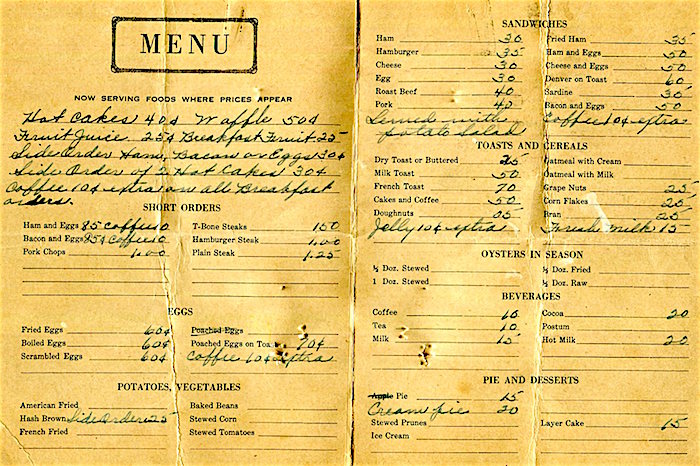 MENU
NOW SERVING FOODS WHERE PRICES APPEAR
Hot Cakes 40¢ Waffle 50¢
Fruit Juice 25¢ Breakfast Fruit 25
Side Order Ham, Bacon or Eggs 30¢
Side Order of 2 Hot Cakes 30¢
Coffee 10¢ extra on all Breakfast
orders.
SHORT ORDERS
Ham and Eggs 85 coffee 10
Bacon and Eggs 85¢ coffee 10
Pork Chops 1.00
T-Bone Steaks 150
Hamburger Steak 1.00
Plain Steak 1.25
EGGS
Fried Eggs 60¢
Boiled Eggs 60¢
Scrambled Eggs 60¢
Poached Eggs
Poached Eggs on Toa 70¢
Coffee 10¢ extra
POTATOES, VEGETABLES
American Fried
Hash Brown Side Order 25
French Fried
Baked Beans
Stewed Corn
Stewed Tomatoes
SANDWICHES
Ham 30
Hamburger 35
Cheese 30
Egg 30
Roast Beef 40
Pork 40
Served with
potato salad
Fried Ham 35
Ham and Eggs 50
Cheese and Eggs 50
Denver on Toast 60
Sardine 30
Bacon and Eggs 50
Coffee 10¢ extra
TOASTS AND CEREALS
Dry Toast or Buttered 25
Milk Toast 50
French Toast 70
Cakes and Coffee 50
Doughnuts 05
Jelly 10¢ extra
Oatmeal with Cream
Oatmeal with Milk
Grape Nuts 25
Corn Flakes 25
Bran 25
Fresh milk 15
OYSTERS IN SEASON
½ Doz. Stewed
1 Doz. Stewed
½ Doz. Fried
½ Doz. Raw
BEVERAGES
Coffee 10
Tea 10
Milk 15
Cocoa 20
Postum
Hot Milk 20
PIE AND DESSERTS
Apple Pie 15
Cream pie 20
Stewed Prunes
Ice Cream
Layer Cake 15